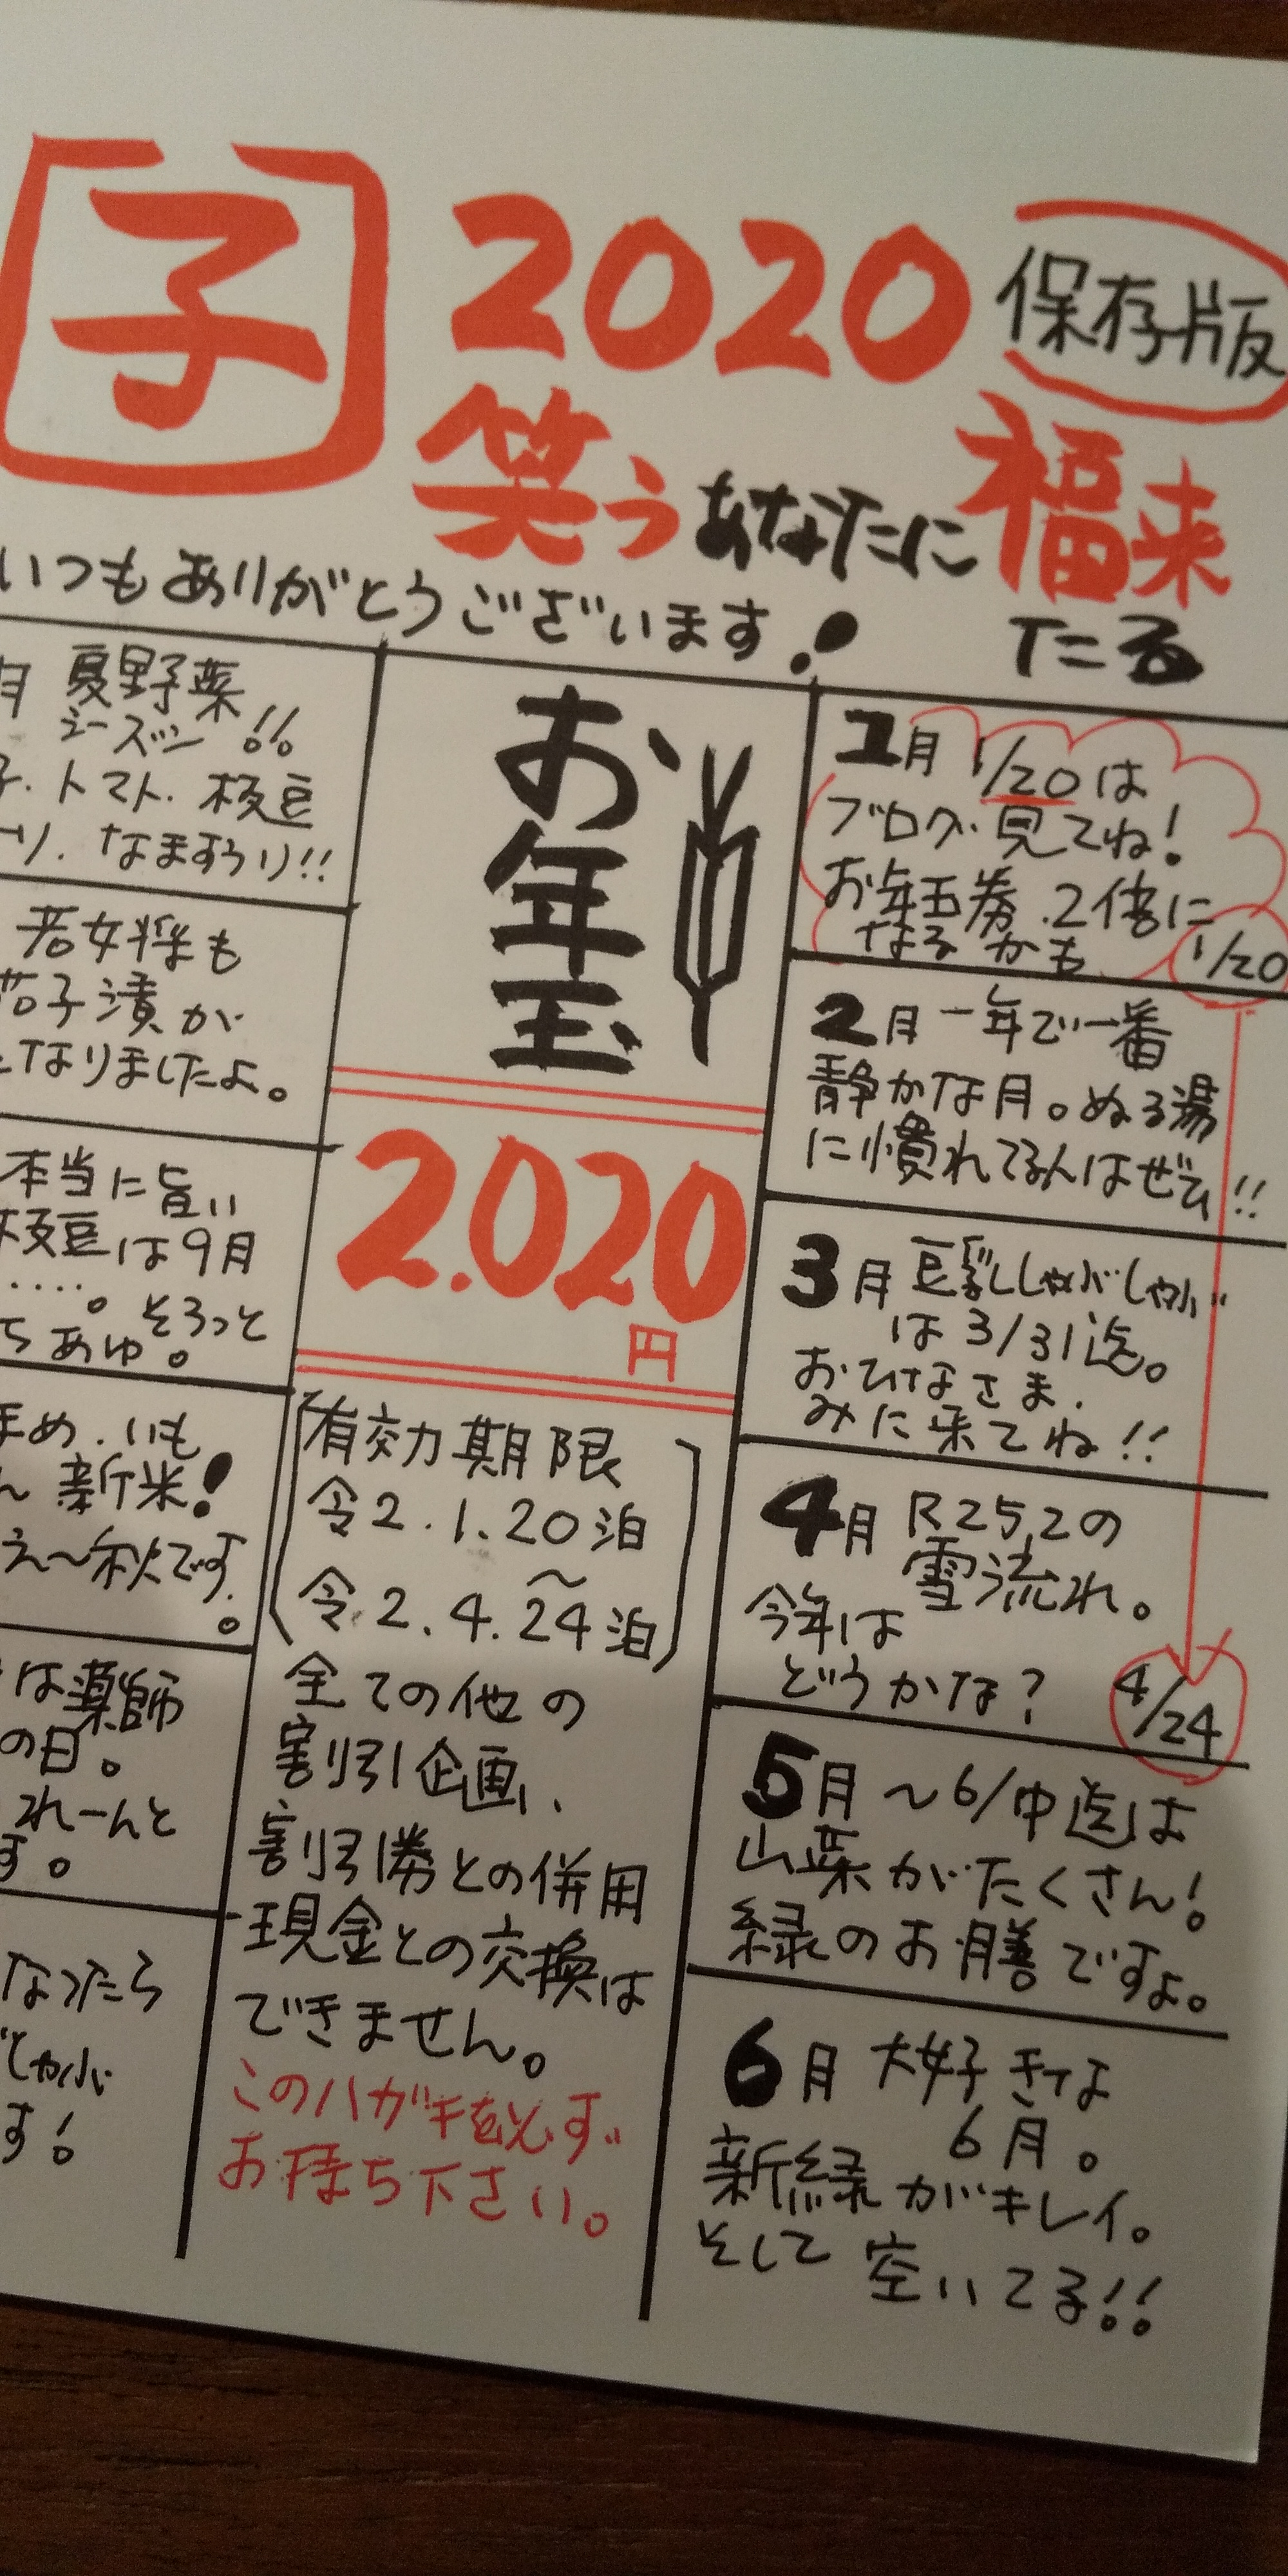 子
2020
保存版
笑うあなたに福来
たる
いつもありがとうございます!
1月 1/20は
ブログ見てね!
お年玉券.2倍に
なるかも
1/20
2月 一年で一番
静かな月。ぬる湯
に慣れてるんはぜひ!!
3月 豆乳しゃぶしゃぶ
は3/31迄。
おひなさま.
みに来てね!!
4月 R2 5.2の
雪流れ。
今年は
どうかな?
4/24
5月 〜6/中迄は
山菜がたくさん!
緑のお膳ですよ。
6月 大好きな
6月。
新緑がキレイ。
そして空いてる!!
お年玉
2.020
円
有効期限
令2.1.20泊
〜
令2.4.24泊
全ての他の
割引企画、
割引券との併用
現金との交換は
できません。
このハガキを必ず
お持ち下さい。
月 夏野菜
シーズン!!
子.トマト.枝豆
り.なますうり!!
若女将も
茄子漬が
なりましたよ。
本当に旨い
枝豆は9月
・・・・。そろっと
ちあゆ。
まめ.いも
〜新米!
え〜秋です。
は薬師
の日。
れーんと
す。
なったら
しゃぶ
す!